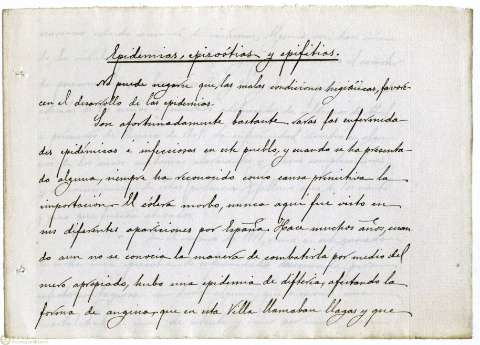 Epidemias, epizoótias y epifítias.
No puede negarse que, las malas condiciones higiénicas, favore-
cen el desarrollo de las epidemias.
Son afortunadamente bastante raras las enfermeda-
des epidémicas é infecciosas en este pueblo, y cuando se ha presenta-
do alguna, siempre ha reconocido como causa primitiva la
importación. El cólera morbo, nunca aquí fué visto en
sus diferentes apariciones por España. Hace muchos años, cuan-
do aun no se conocia la manera de combatirla por medio del
suero apropiado, hubo una epidemia de difteria, afectando la
forma de anginas, que en esta Villa llamaban llagas y que